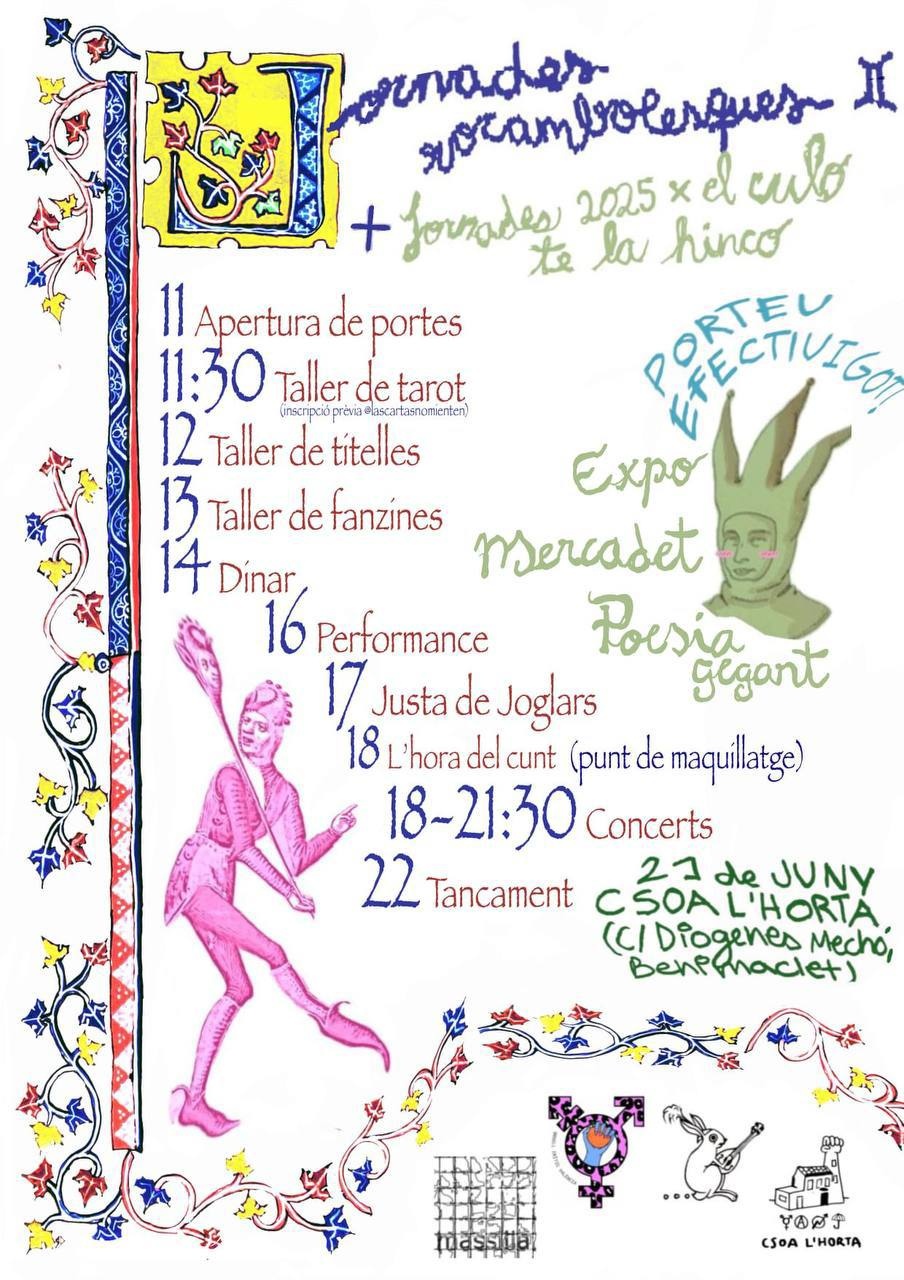 Jornades
rocambolesques II
+ Jornades 2025 x el culo
te la hinco
11 Apertura de portes
11:30 Taller de tarot
(inscripció prèvia @lascartasnomienten)
12 Taller de titelles
13 Taller de fanzines
14 Dinar
16 Performance
17 Justa de Joglars
18 L'hora del cunt (punt de maquillatge)
18-21:30 Concerts
22 Tancament
PORTEU
EFECTIUIGOT!
Expo
Mercadet
Poesia
gegant
de JUNY
CSOA L'HORTA
(C/Diogenes Mechó,
Benimaclet)
massila
CSOA L'HORTA